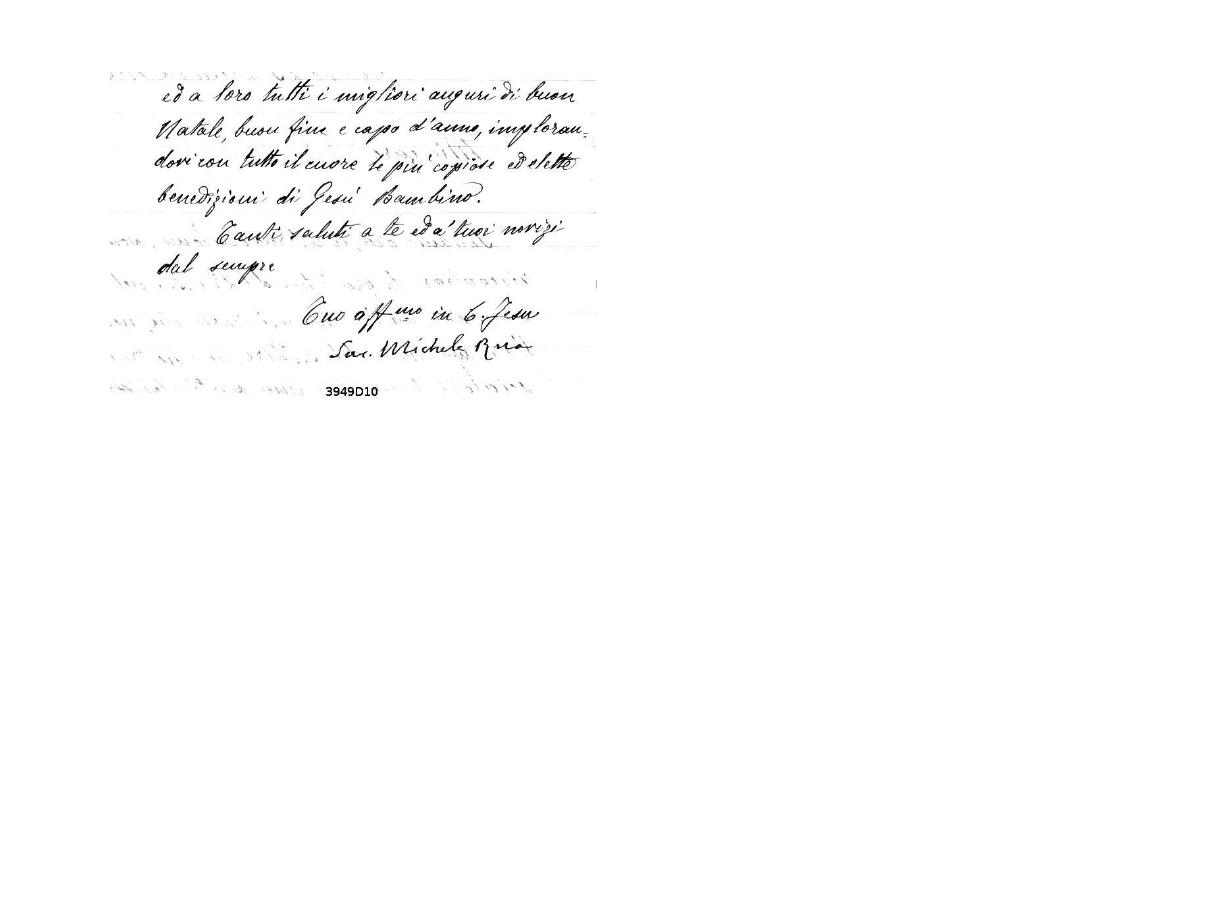 ed a loro tutti i migliori auguri di buon
Natale, buon fine e capo d'anno, imploran-
dovi con tutto il cuore le più copiose ed elette
benedizioni di Gesù Bambino.
Tanti saluti a te ed a' tuoi novizi
dal sempre
Tuo affmo in C. Jesu
Sac. Michele Rua
3949D10